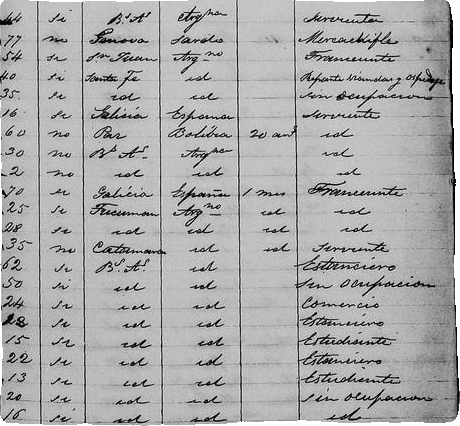 44 si Bs As Argna Sirvienta
77 no Genova Sardo Mercachifle
54 si Sn Juan Argno Transeunte
40 si Santa Fe id Reparte viandas y
35 si id id sin ocupacion
16 si Galicia España Sirviente
60 no Paz Bolibia 20 ans id
30 no Bs As Argna id
2 no id id id
70 si Galicia España 1 mes Transeunte
25 si Tucuman Argno id id
28 si id id id id
35 no Catamarca id id Sirviente
62 si Bs As id Estanciero
50 si id id sin ocupacion
24 si id id Comercio
si id id Estanciero
15 si id id Estudiante
22 si id id Estanciero
13 si id id Estudiante
20 si id id sin ocupacion
16 si id id id